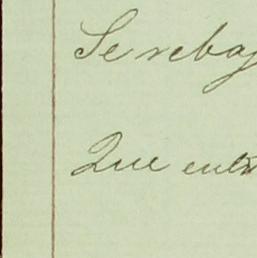 Se rebaj
Que entr